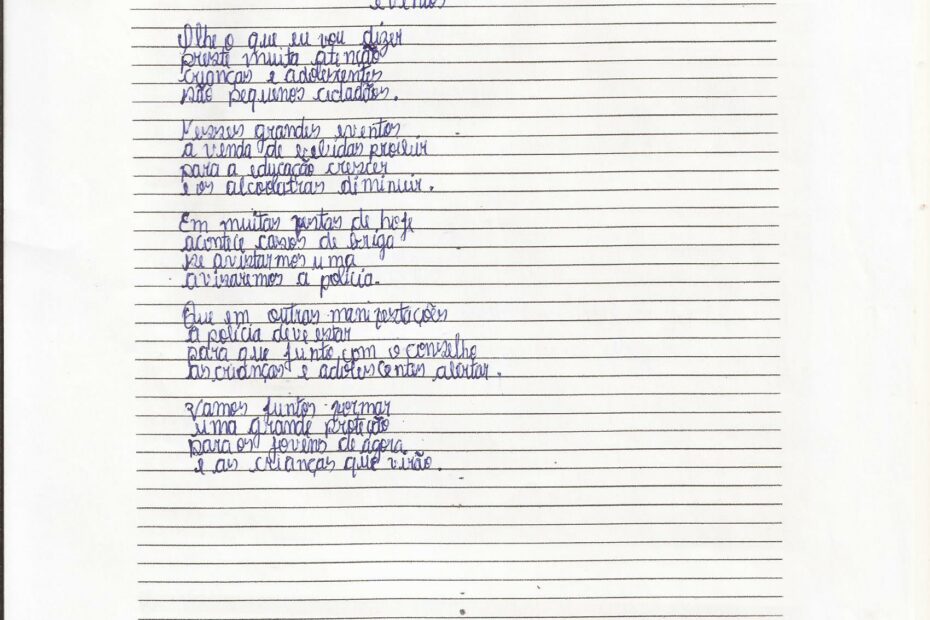 eventos
Olhe o que eu vou dizer
preste muita atenção
crianças e adolescentes
são pequenos cidadãos.
Nesses grandes eventos
a venda de bebidas proibir
para a educação crescer
e os alcoolatras diminuir.
Em muitas festas de hoje
acontece casos de briga
se avistarmos uma
avisaremos a polícia.
Que em outras manifestações
a polícia deve estar
para que junto com o conselho
as crianças e adolescentes alertar.
Vamos juntos formar
uma grande proteção
para os jovens de agora
e as crianças que virão.